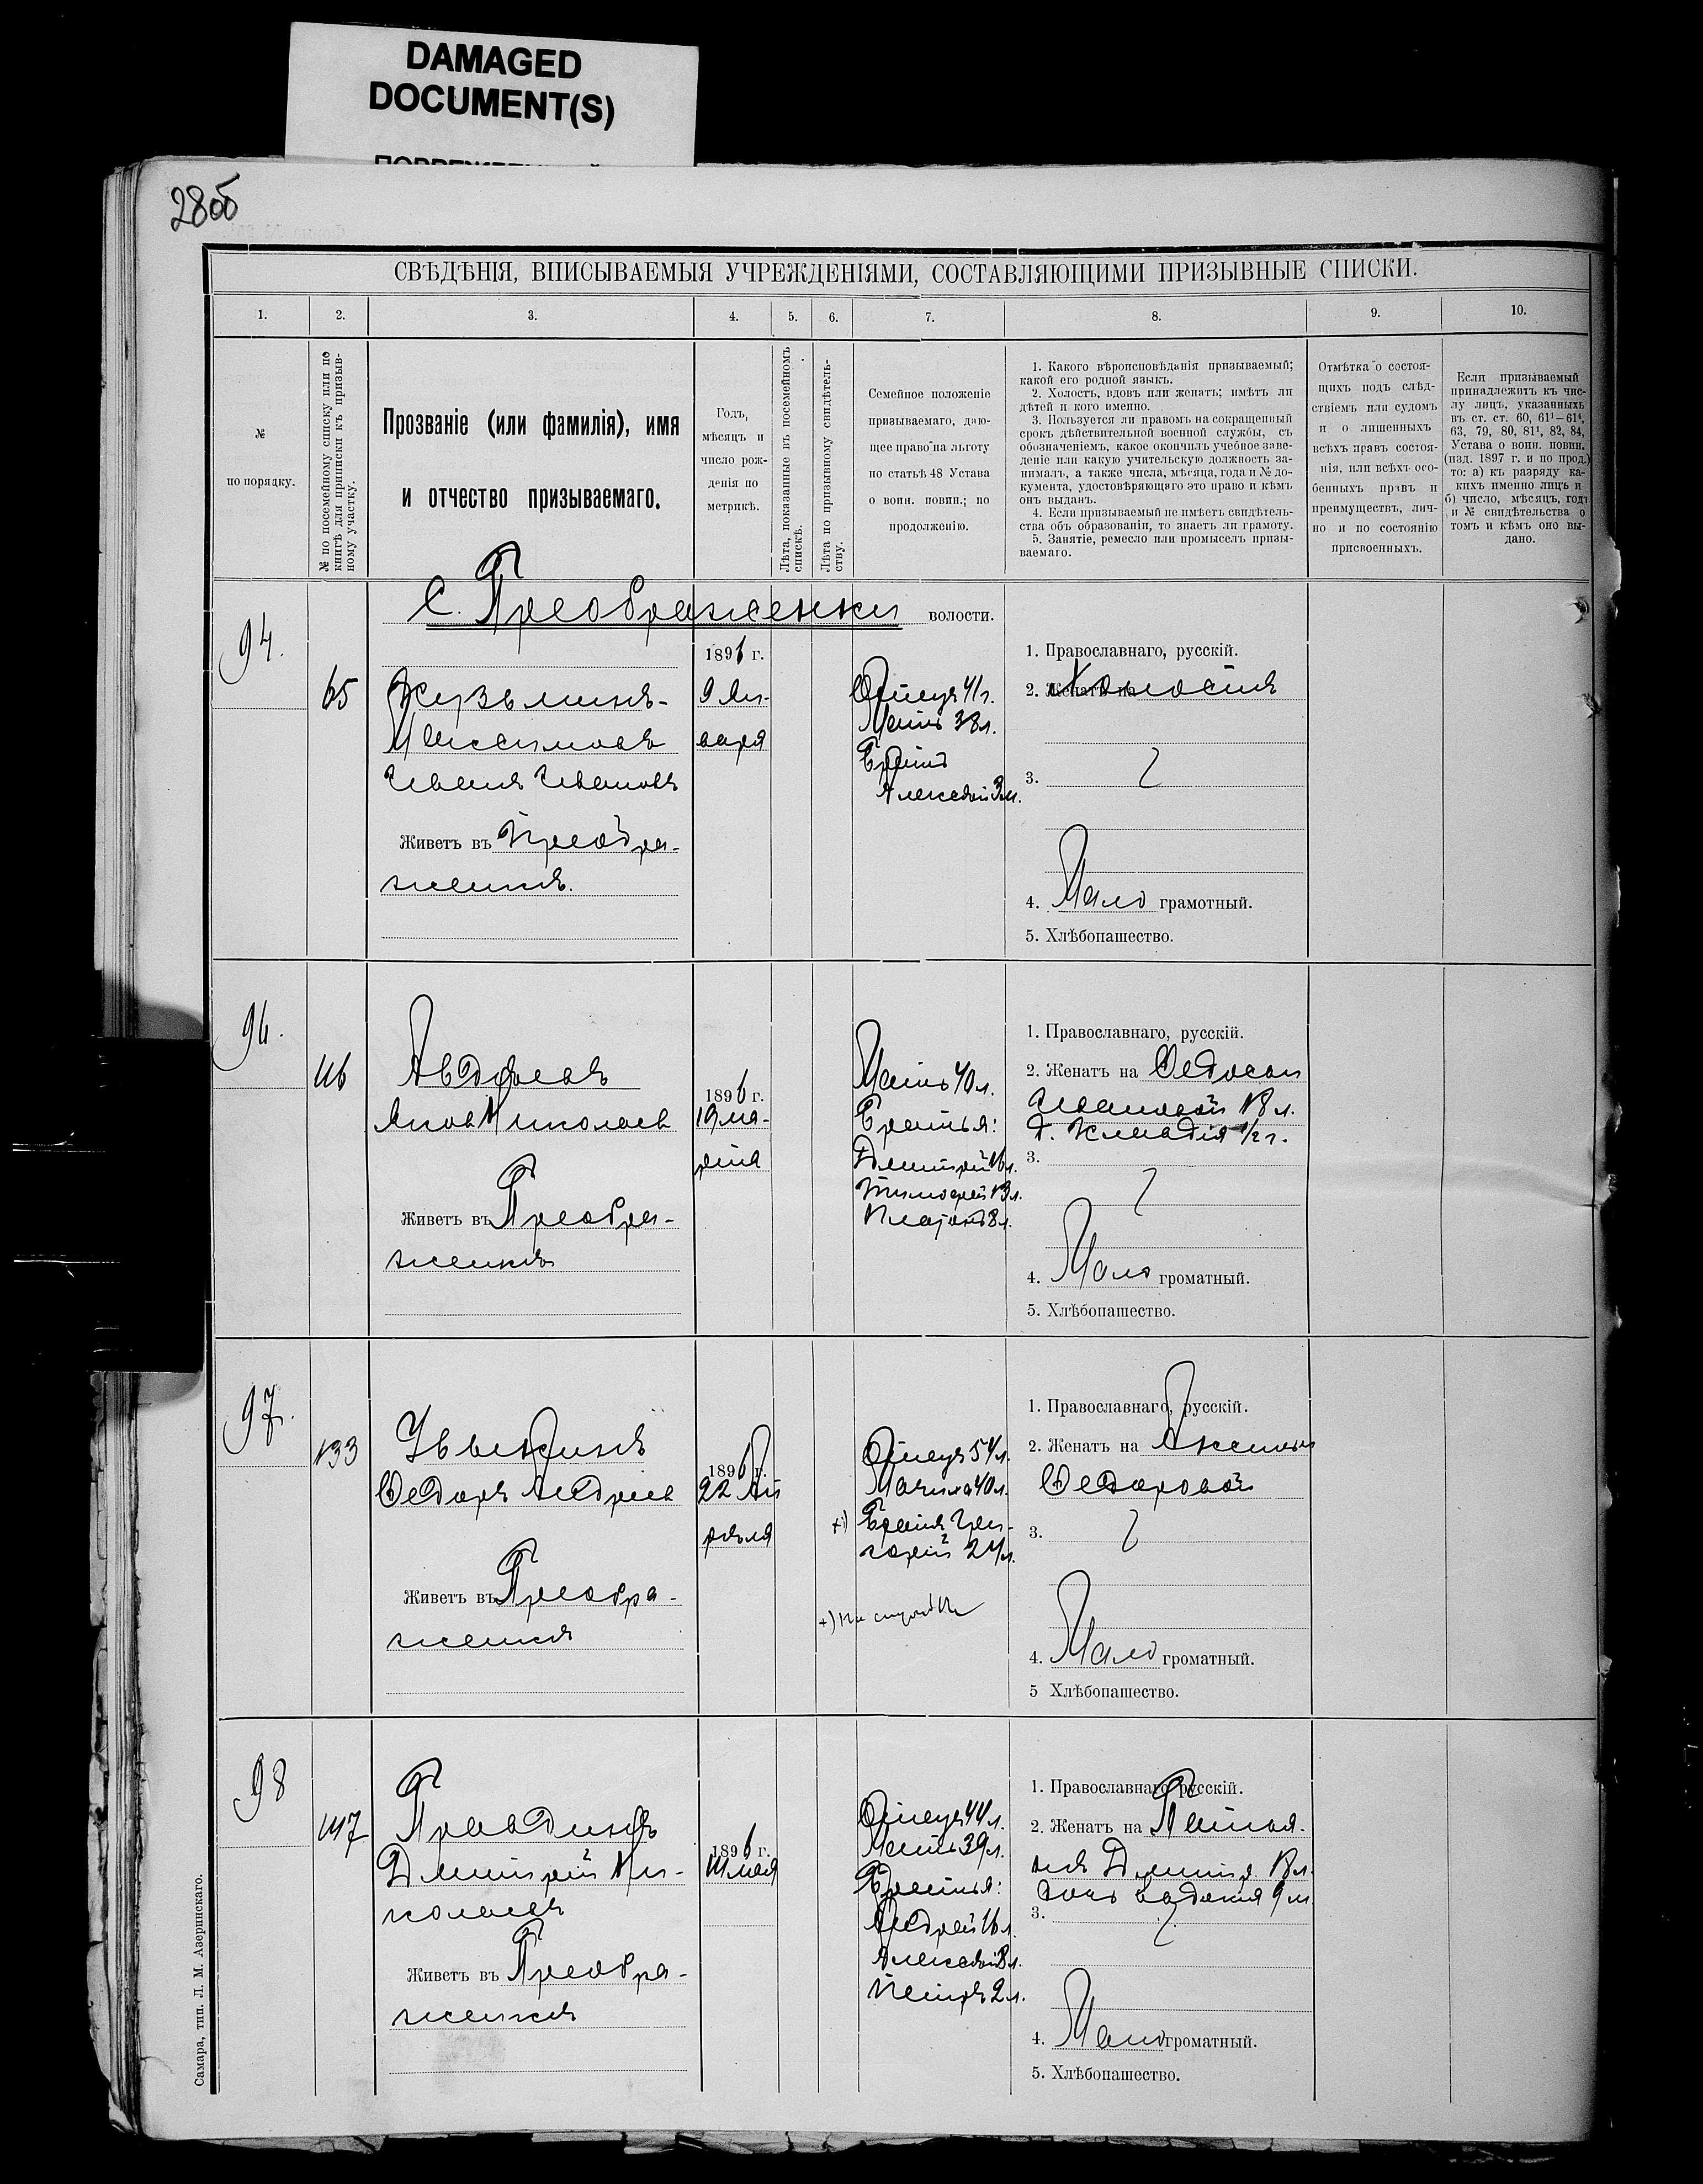 DAMAGED
DOCUMENT(S)
280б
СВѢДѢНІЯ, ВПИСЫВАЕМЫЯ УЧРЕЖДЕНІЯМИ, СОСТАВЛЯЮЩИМИ ПРИЗЫВНЫЕ СПИСКИ.
1. 2. 3. 4. 5. 6. 7. 8. 9. 10.
№
по порядку.
№ по посемейному списку или по
книгѣ для приписки къ призыв-
ному участку.
Прозваніе (или фамилія), имя
и отчество призываемаго.
Годъ,
мѣсяцъ и
число рож-
денія по
метрикѣ.
Лѣта, показанные въ посемейномъ
спискѣ.
Лѣта по призывному свидѣтель-
ству.
Семейное положеніе
призываемаго, даю-
щее право на льготу
по статьѣ 48 Устава
о воин. повин.; по
продолженію.
1. Какого вѣроисповѣданія призываемый;
какой его родной языкъ.
2. Холостъ, вдовъ или женатъ; имѣтъ ли
дѣтей и кого именно.
3. Пользуется ли правомъ на сокращенный
срокъ дѣйствительной военной службы, съ
обозначеніемъ, какое окончилъ учебное заве-
деніе или какую учительскую должность за-
нималъ, а также числа, мѣсяца, года и № до-
кумента, удостовѣряющаго это право и кѣмъ
онъ выданъ.
4. Если призываемый не имѣетъ свидѣтель-
ства объ образованіи, то знаетъ ли грамоту.
5. Занятіе, ремесло или промыселъ призы-
ваемаго.
Отмѣтка о состоя-
щихъ подъ слѣд-
ствіемъ или судомъ
и о лишенныхъ
всѣхъ правъ состоя-
нія, или всѣхъ осо-
бенныхъ правъ и
преимуществъ, лич-
но и по состоянію
присвоенныхъ.
Если призываемый
принадлежитъ къ чис-
лу лицъ, указанныхъ
въ ст. ст. 60, 61¹—61⁴,
63, 79, 80, 81¹, 82, 84,
Устава о воин. повин.
(изд. 1897 г. и по прод.)
то: а) къ разряду ка-
кихъ именно лицъ и
б) число, мѣсяцъ, годъ
и № свидѣтельства о
томъ и кѣмъ оно вы-
дано.
С. Преображенки волости.
94.
65
Кузьминъ-
Максимовъ
Иванъ Ивановъ
Живетъ въ Преобра-
женкѣ.
1896 г.
9 Ян-
варя
Отецъ 41 г.
Мать 38 л.
Братъ
Алексѣй 3 м.
1. Православнаго, русскій.
2. Женатъ на Холостъ
3.
4. Мало грамотный.
5. Хлѣбопашество.
96.
116
Авдѣевъ
Яковъ Николаев
Живетъ въ Преобра-
женкѣ
1896 г.
19 ма-
рта
Мать 40 л.
Братья:
Дмитрій 16 л.
Тимофей 13 л.
Платонъ 8 л.
1. Православнаго, русскій.
2. Женатъ на Федосьи
Ивановой 18 л.
д. Клавдія 1/2 г.
3.
4. Мало громатный.
5. Хлѣбопашество.
97.
133
Федоръ Андреев
Живетъ въ Преобра-
женкѣ
1896 г.
22 Ап
рѣля
Отецъ 54 л.
Мачиха 40 л.
+) Братъ Гри-
горій 24 л.
+) На службѣ
1. Православнаго, русскій.
2. Женатъ на Аксиньи
Федоровой
3.
4. Мало громатный.
5 Хлѣбопашество.
98
147
Правдинъ
Дмитрій Ни-
колаевъ
Живетъ въ Преобра-
женкѣ
1896 г.
11 мая
Отецъ 44 л.
Мать 39 л.
Братья:
Андрей 16 л.
Алексѣй 8 л.
Петръ 2 л.
1. Православнаго русскій.
2. Женатъ на Татья-
нѣ Дмитр. 18 л.
дочь 9 м
3.
4. Мало громатный.
5. Хлѣбопашество.
Самара, тип. Л. М. Азеринскаго.